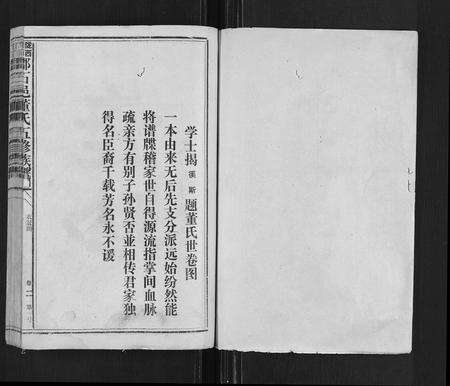 学士揭傒斯题董氏世卷图
一本由来无后先支分派远始纷然能
将谱牒稽家世自得源流指掌间血脉
疏亲方有别子孙贤否並相传君家独
得名臣裔千载芳名永不谖
董氏五修族譜